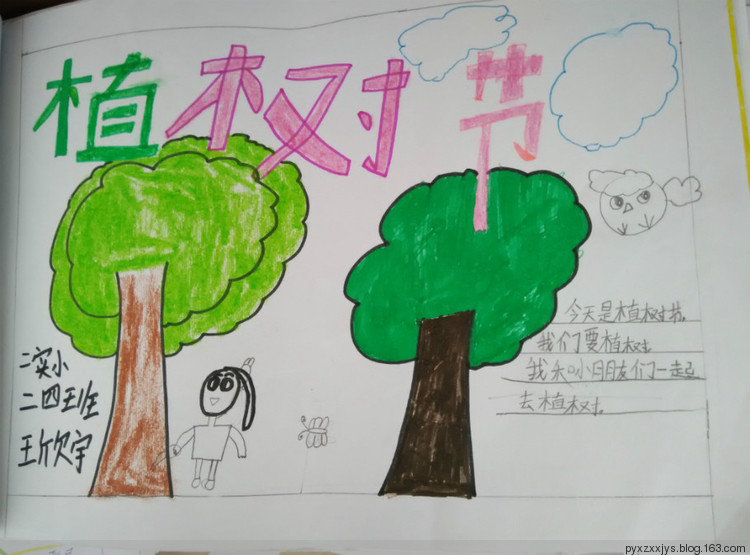 植树节
今天是植树节,
我们要植树
我和小朋友们一起
去植树。
二实小
二四班
王欣宇
pyxzxxjys.blog.163.com